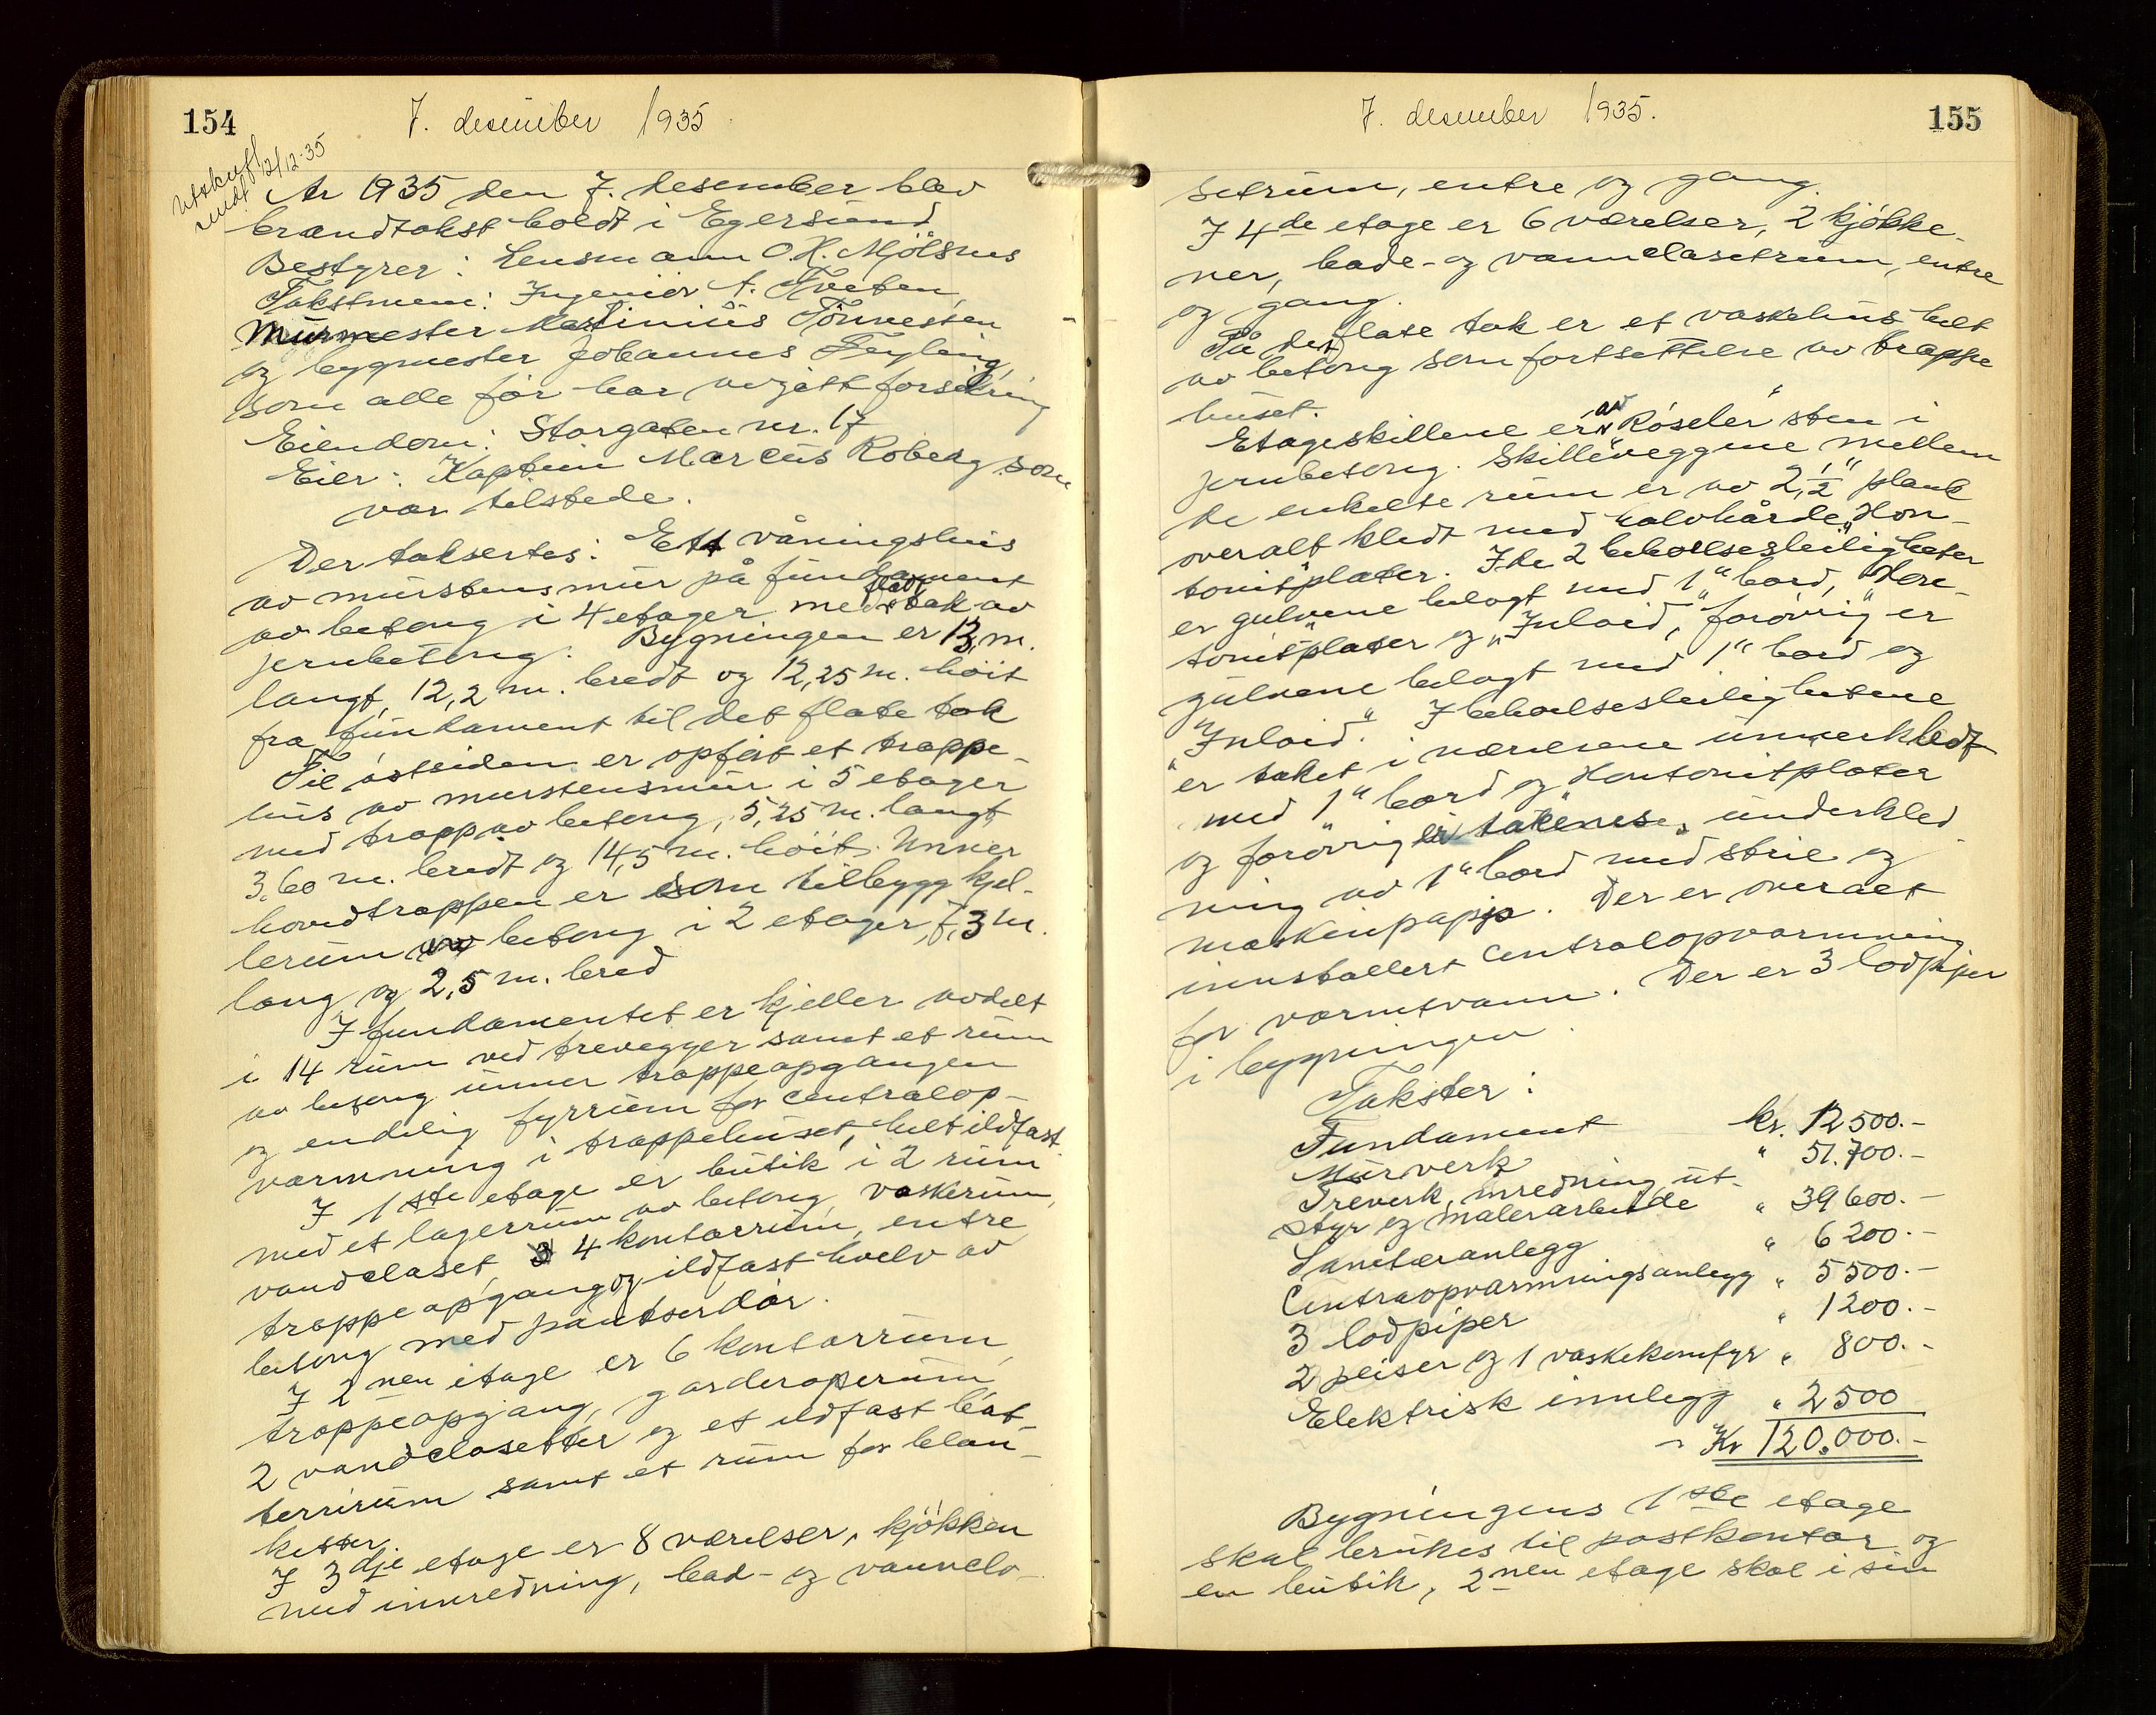 154
7. desember 1935.
Utskrift
sendt 12/12-35
År 1935 den 7. desember blev
brandtakst holdt i Egersund
Bestyrer: Lensmann O. K. Mjölsnes
Takstmenn: Ingeniör A. Tveten,
Murmester Martinius Tönnesen
og bygmester Johannes Feyling,
som alle för har avgått forsikring
Eiendom: Storgaten nr. 17
Eier: Kaptein Marcus Roberg som
var tilstede.
Der taksertes: Ett våningshus
av murstensmur på fundament
av betong i 4 etager med flatt tak av
jernbetong. Bygningen er 13, m.
langt, 12,2 m. bredt og 12,25 m. höit
fra fundament til det flate tak
Til östsiden er opfört et trappe-
hus av murstensmur i 5 etager
med trapp av betong, 5,25 m. langt,
3,60 m. bredt og 14,5 m. höit. Unner
hovedtrappen er som tilbygg kjel-
lerum av betong i 2 etager, 7,3 m.
lang og 2,5 m. bred
I fundamentet er kjeller avdelt
i 14 rum ved trevegger samt et rum
av betong unner trappeopgangen
og endelig fyrrum for centralop-
varmning i trappehuset, helt ildfast.
I 1ste etage er butik i 2 rum
med et lagerrum av betong, vaskerum,
vandclaset, 4 kontorrum, entre
trappeopgang og ildfast hvelv av
betong med pantserdör.
I 2nen etage er 6 kontorrum,
trappeopgang, garderoperum,
2 vandclosetter og et ildfast bat-
terrirum samt et rum for blan-
ketter.
I 3dje etage er 8 værelser, kjökken
med innredning, bad- og vannclo-
7. desember 1935.
155
setrum, entre og gang.
I 4de etage er 6 værelser, 2 kjökke-
ner, bade- og vannclasetrum, entre
og gang.
På det flate tak er et vaskehus helt
av betong som fortsettelse av trappe
huset.
Etageskillene er av "Röseler" sten i
jernbetong. Skilleveggene mellem
de enkelte rum er av 2 1/2" plank
overalt kledt med halvhårde "Hon-
tonit"plater. I de 2 beboelsesleiligheter
er gulvene belagt med 1" bord, "Hon-
tonit"plater og "Inloid", forövrig er
gulvene belagt med 1" bord og
"Inloid". I beboelsesleilighetene
er taket i værelsene underkledt
med 1" bord og "Hontonitplater
og forövrig er takenes underkled
ning av 1" bord med strie og
maskinpapp. Der er overalt
innstallert centralopvarmning
for varmtvann. Der er 3 lodpiper
i bygningen.
Takster:
Fundament kr. 12500.-
Murverk " 51.700.-
Treverk, inredning, ut-
styr og malerarbeide " 39600.-
Sanitæranlegg " 6200.-
Centraopvarmningsanlegg " 5500.-
3 lodpiper " 1200.-
2 peiser og 1 vaskekomfyr " 800.-
Elektrisk innlegg " 2500
Kr 120.000.-
Bygningens 1ste etage
skal brukes til postkontor og
en butik, 2nen etage skal i sin